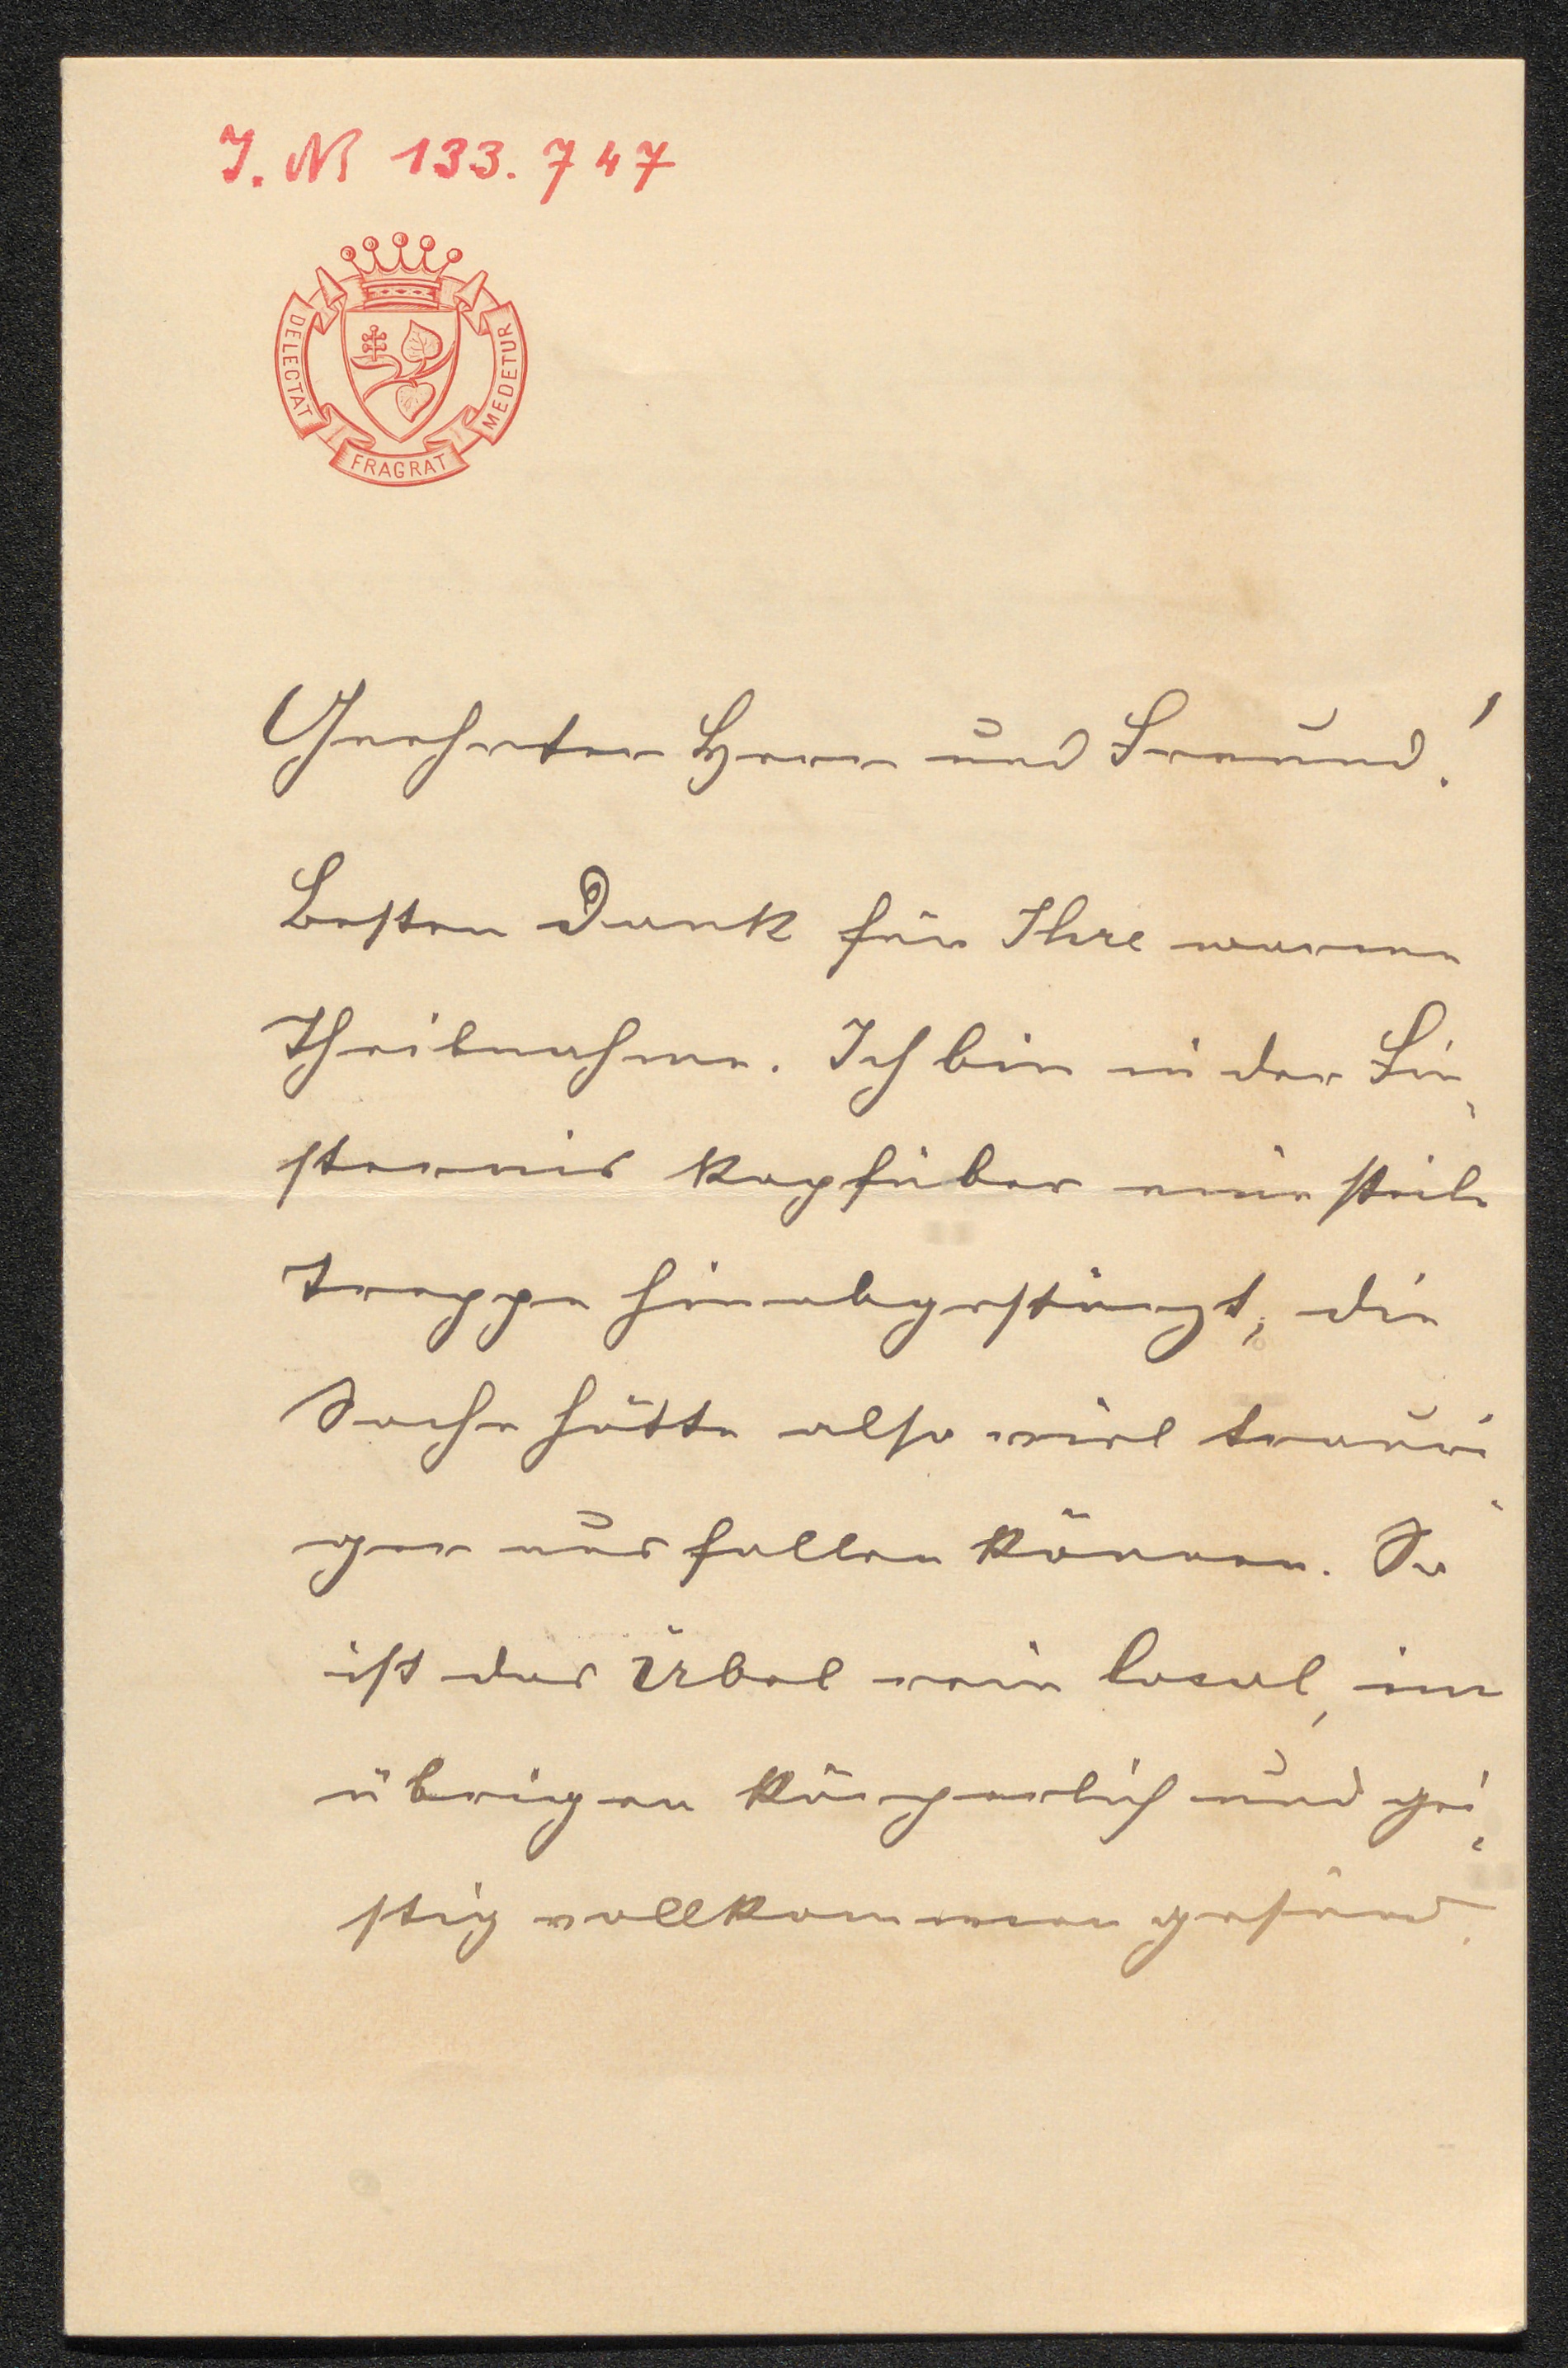 J. N 133.747
DELECTAT
FRAGRAT
MEDETUR
Geehrter Herr und Freund!
Besten Dank für Ihre warme
Theilnahme. Ich bin in der Fin-
sternis kopfüber eine steile
Treppe hinabgestürzt; die
Sache hätte also viel trauri-
ger ausfallen können. So
ist das Übel rein local, im
übrigen körperlich und gei-
stig vollkommen gesund.